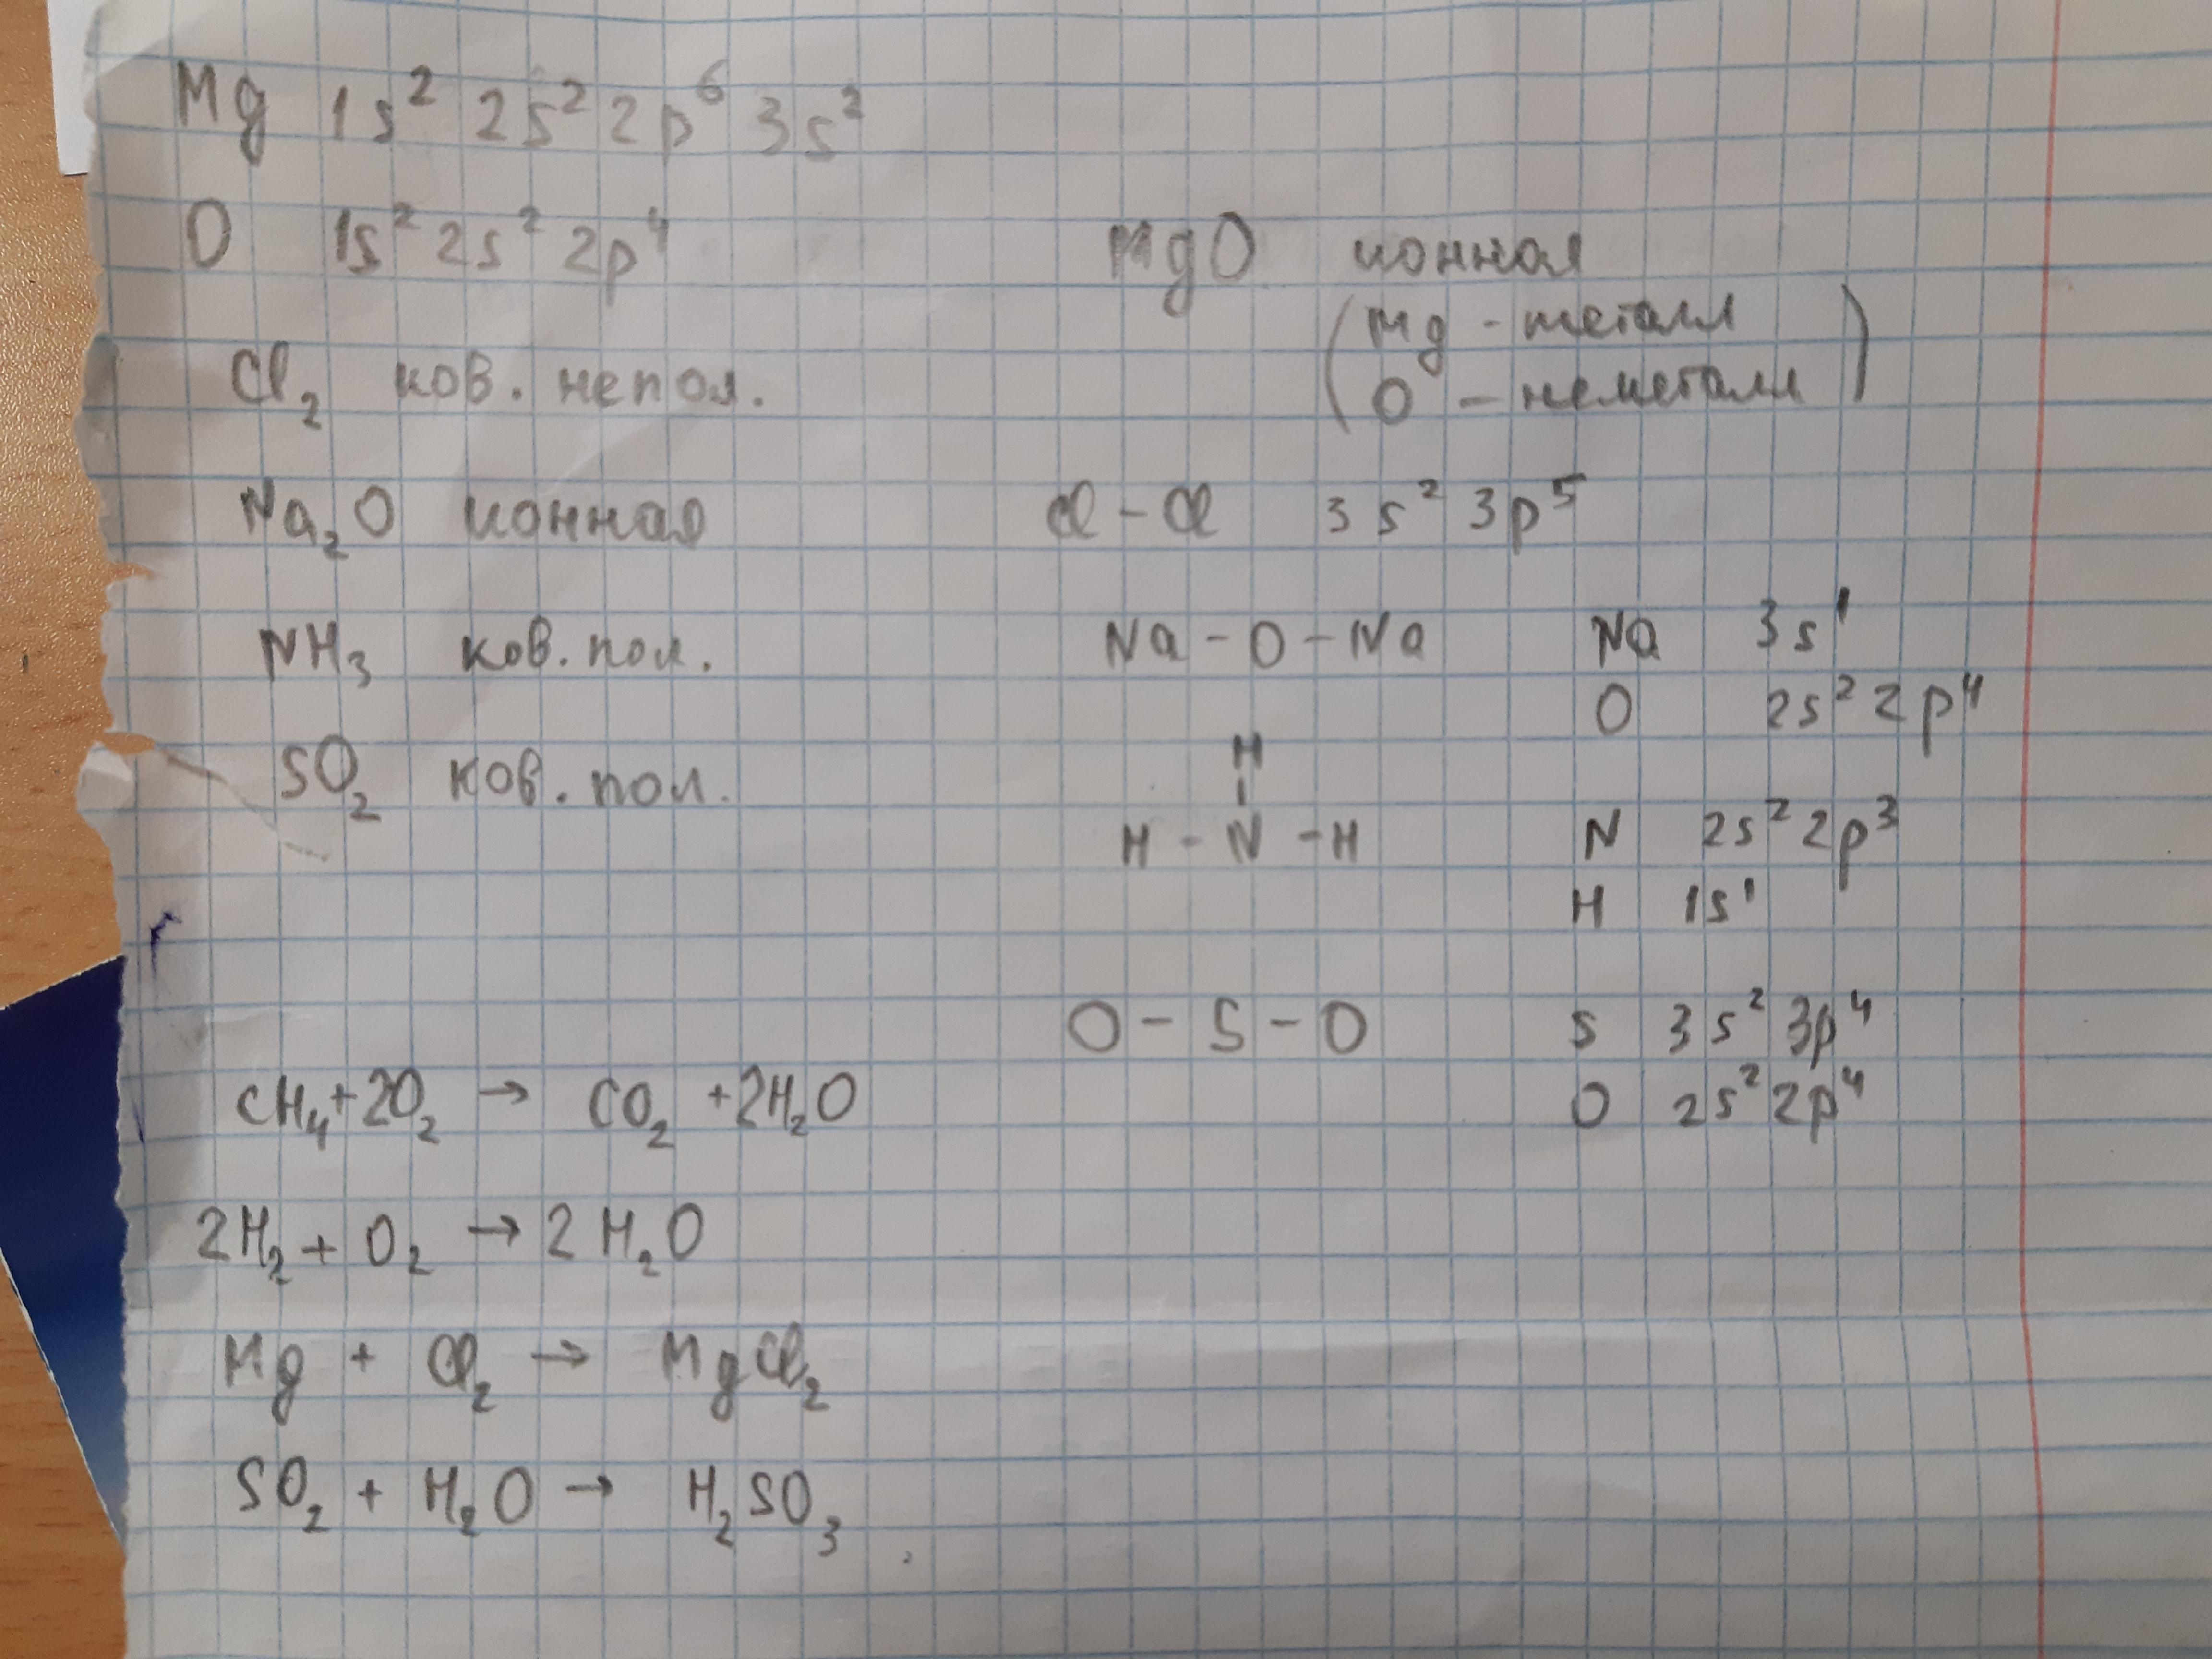 Mg 1s² 2s² 2p⁶ 3s²
O 1s² 2s² 2p⁴
MgO ионная
(Mg - металл
O - неметалл)
Cl₂ ков. непол.
Na₂O ионная
Cl - Cl 3s² 3p⁵
NH₃ ков. пол.
Na - O - Na Na 3s¹
O 2s² 2p⁴
SO₂ ков. пол.
H
|
H - N - H N 2s² 2p³
H 1s¹
O - S - O S 3s² 3p⁴
O 2s² 2p⁴
CH₄ + 2O₂ → CO₂ + 2H₂O
2H₂ + O₂ → 2H₂O
Mg + Cl₂ → MgCl₂
SO₂ + H₂O → H₂SO₃